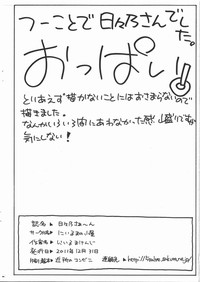 つーことで日々乃さんでした。
おっぱい!!
とりあえず描かないことにはおさまらないので
描きました。
なんかいろいろ間にあわなかった感山盛りだな
気にしない!
誌名 ▶ 日々乃さぁ〜ん
サークル名 ▶
作家名 ▶
発行日 ▶ 2011年12月31日
印刷・製本 ▶ 近所のコンビニ 連絡先 ▶